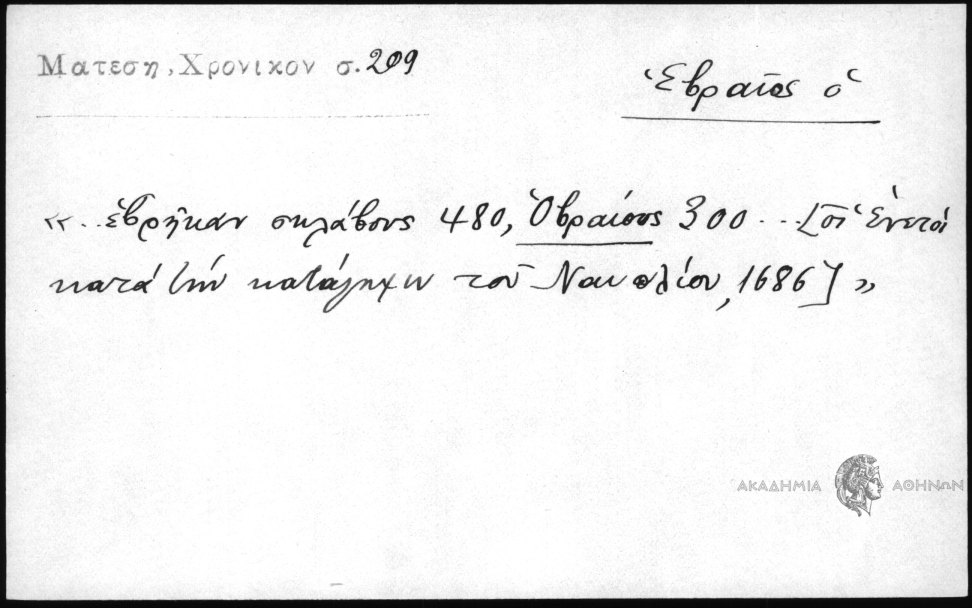 Ματεση, Χρονικον σ. 209
Ἑβραῖος ὁ
«.. ἐβρῆκαν σκλάβους 480, Ὀβραίους 300 ... [οἱ Ἑνετοὶ
κατά τήν κατάληψιν τοῦ Ναυπλίου, 1686] »
ΑΚΑΔΗΜΙΑ ΑΘΗΝΩΝ